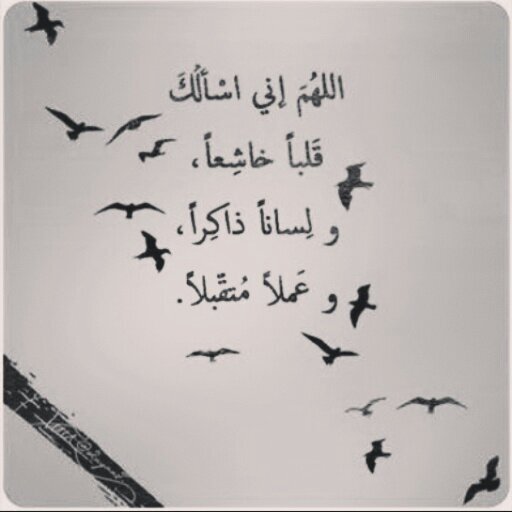 اللهُمَ إني اسْألُكَ
قَلباً خاشِعاً،
و لِساناً ذاَكِراً،
و عَملاً مُتقّبلاً.